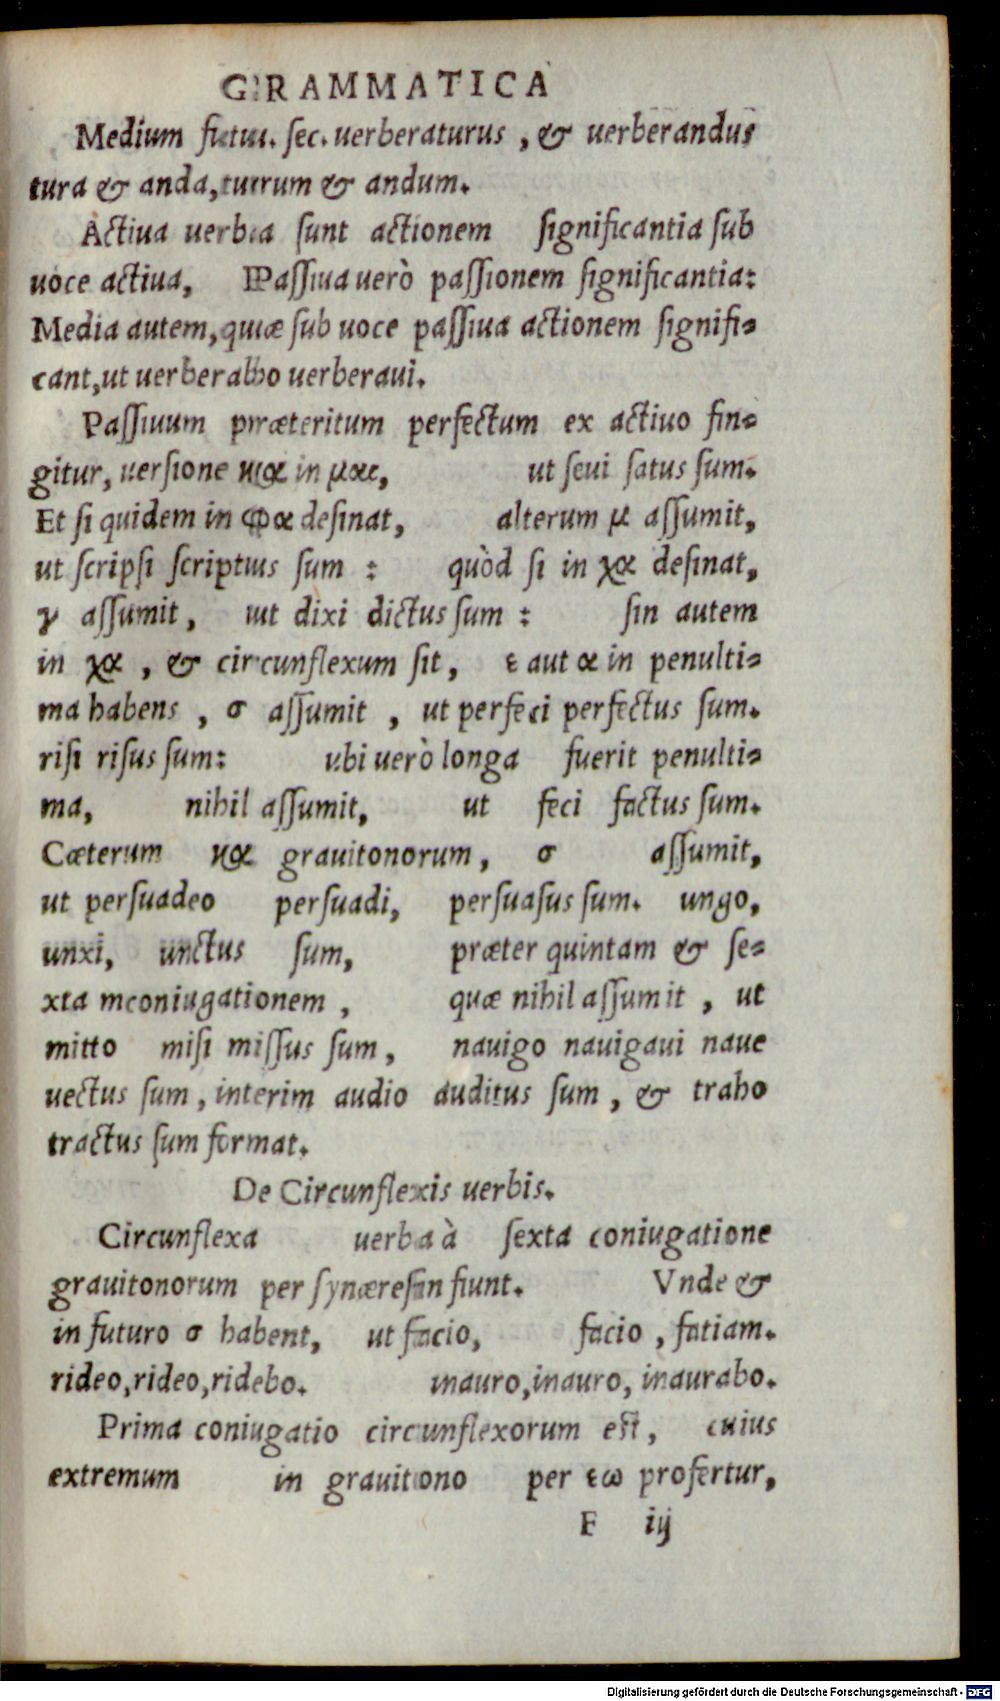 GRAMMATICA
Medium futu. sec. uerberaturus, & uerberandus
tura & anda, turum & andum.
Actiua uerba sunt actionem significantia sub
uoce actiua, Passiua uerò passionem significantia:
Media autem, quæ sub uoce passiua actionem signifi-
cant, ut uerberabo uerberaui.
Passiuum præteritum perfectum ex actiuo fin-
gitur, uersione κα in μαι, ut seui satus sum.
Et si quidem in φα desinat, alterum μ assumit,
ut scripsi scriptus sum : quòd si in χα desinat,
γ assumit, ut dixi dictus sum : sin autem
in χα, & circunflexum sit, ε aut α in penulti-
ma habens, σ assumit, ut perfeci perfectus sum.
risi risus sum: ubi uerò longa fuerit penulti-
ma, nihil assumit, ut feci factus sum.
Cæterum κα grauitonorum, σ assumit,
ut persuadeo persuadi, persuasus sum. ungo,
unxi, unctus sum, præter quintam & se-
xta mconiugationem, quæ nihil assumit, ut
mitto misi missus sum, nauigo nauigaui naue
uectus sum, interim audio auditus sum, & traho
tractus sum format.
De Circunflexis uerbis.
Circunflexa uerba à sexta coniugatione
grauitonorum per synæresin fiunt. Vnde &
in futuro σ habent, ut facio, facio, fatiam.
rideo, rideo, ridebo. inauro, inauro, inaurabo.
Prima coniugatio circunflexorum est, cuius
extremum in grauitono per εω profertur,
F iij
Digitalisierung gefördert durch die Deutsche Forschungsgemeinschaft - DFG